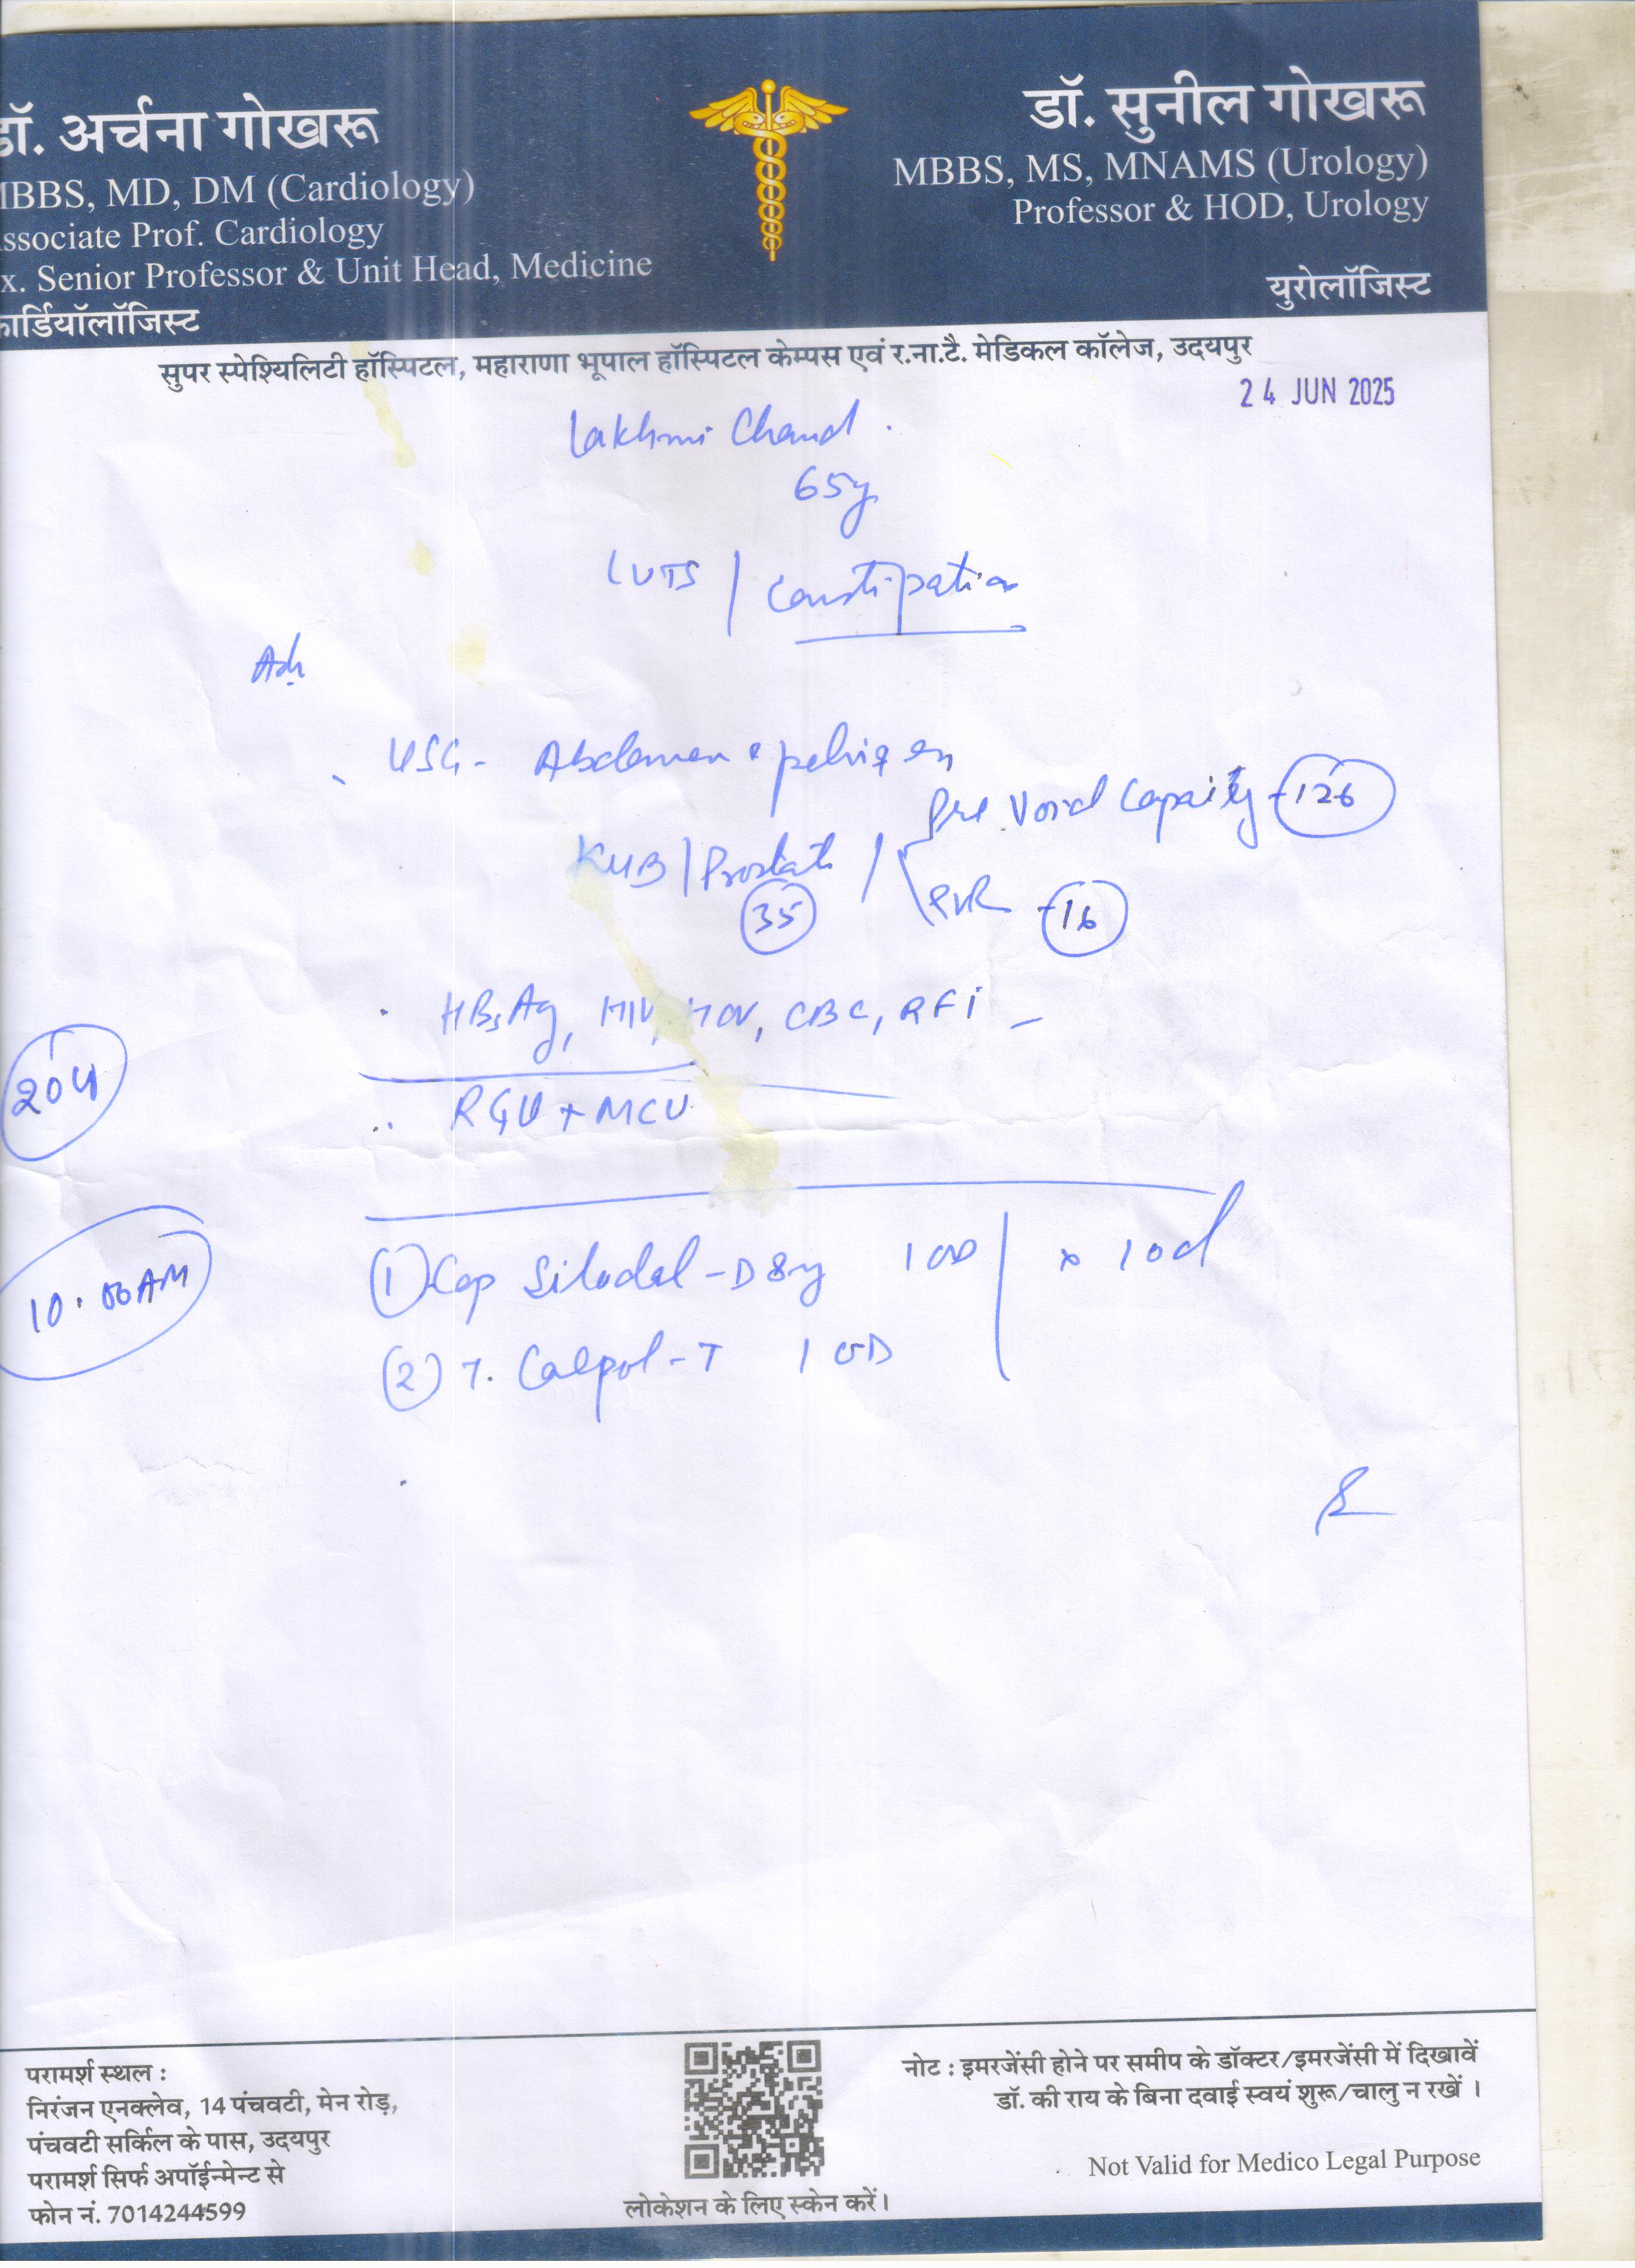 डॉ. अर्चना गोखरू
MBBS, MD, DM (Cardiology)
ssociate Prof. Cardiology
x. Senior Professor & Unit Head, Medicine
कार्डियॉलॉजिस्ट
डॉ. सुनील गोखरू
MBBS, MS, MNAMS (Urology)
Professor & HOD, Urology
युरोलॉजिस्ट
सुपर स्पेश्यिलिटी हॉस्पिटल, महाराणा भूपाल हॉस्पिटल केम्पस एवं र.ना.टै. मेडिकल कॉलेज, उदयपुर
24 JUN 2025
Lakhmi Chand.
65y
LUTS / Constipation
Adv
USG - Abdomen & pelvis
Pre Void Capacity - 126
KUB / Prostate /
35
PVR - 16
HBsAg, HIV, HCV, CBC, RFT
204
RGU + MCU
10:00 AM
(1) Cap Silodal-D 8mg 1 OD x 10d
(2) T. Calpol-T 1 OD
परामर्श स्थल :
निरंजन एनक्लेव, 14 पंचवटी, मेन रोड़,
पंचवटी सर्किल के पास, उदयपुर
परामर्श सिर्फ अपॉईन्मेन्ट से
फोन नं. 7014244599
लोकेशन के लिए स्केन करें।
नोट : इमरजेंसी होने पर समीप के डॉक्टर/इमरजेंसी में दिखावें
डॉ. की राय के बिना दवाई स्वयं शुरू/चालु न रखें ।
Not Valid for Medico Legal Purpose